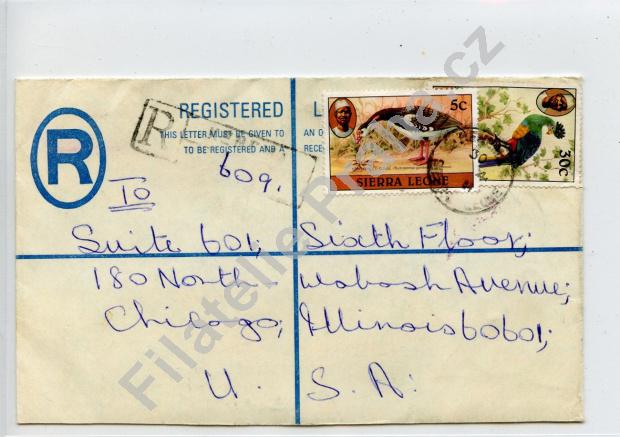 REGISTERED L
THIS LETTER MUST BE GIVEN TO AN O
TO BE REGISTERED AND A RECE
R
R
609.
5c
SIERRA LEONE
30c
To
Suite 601; Sixth Floor;
180 North Wabash Avenue;
Chicago; Illinois 60601;
U. S. A.
Filatelie-Praha.cz